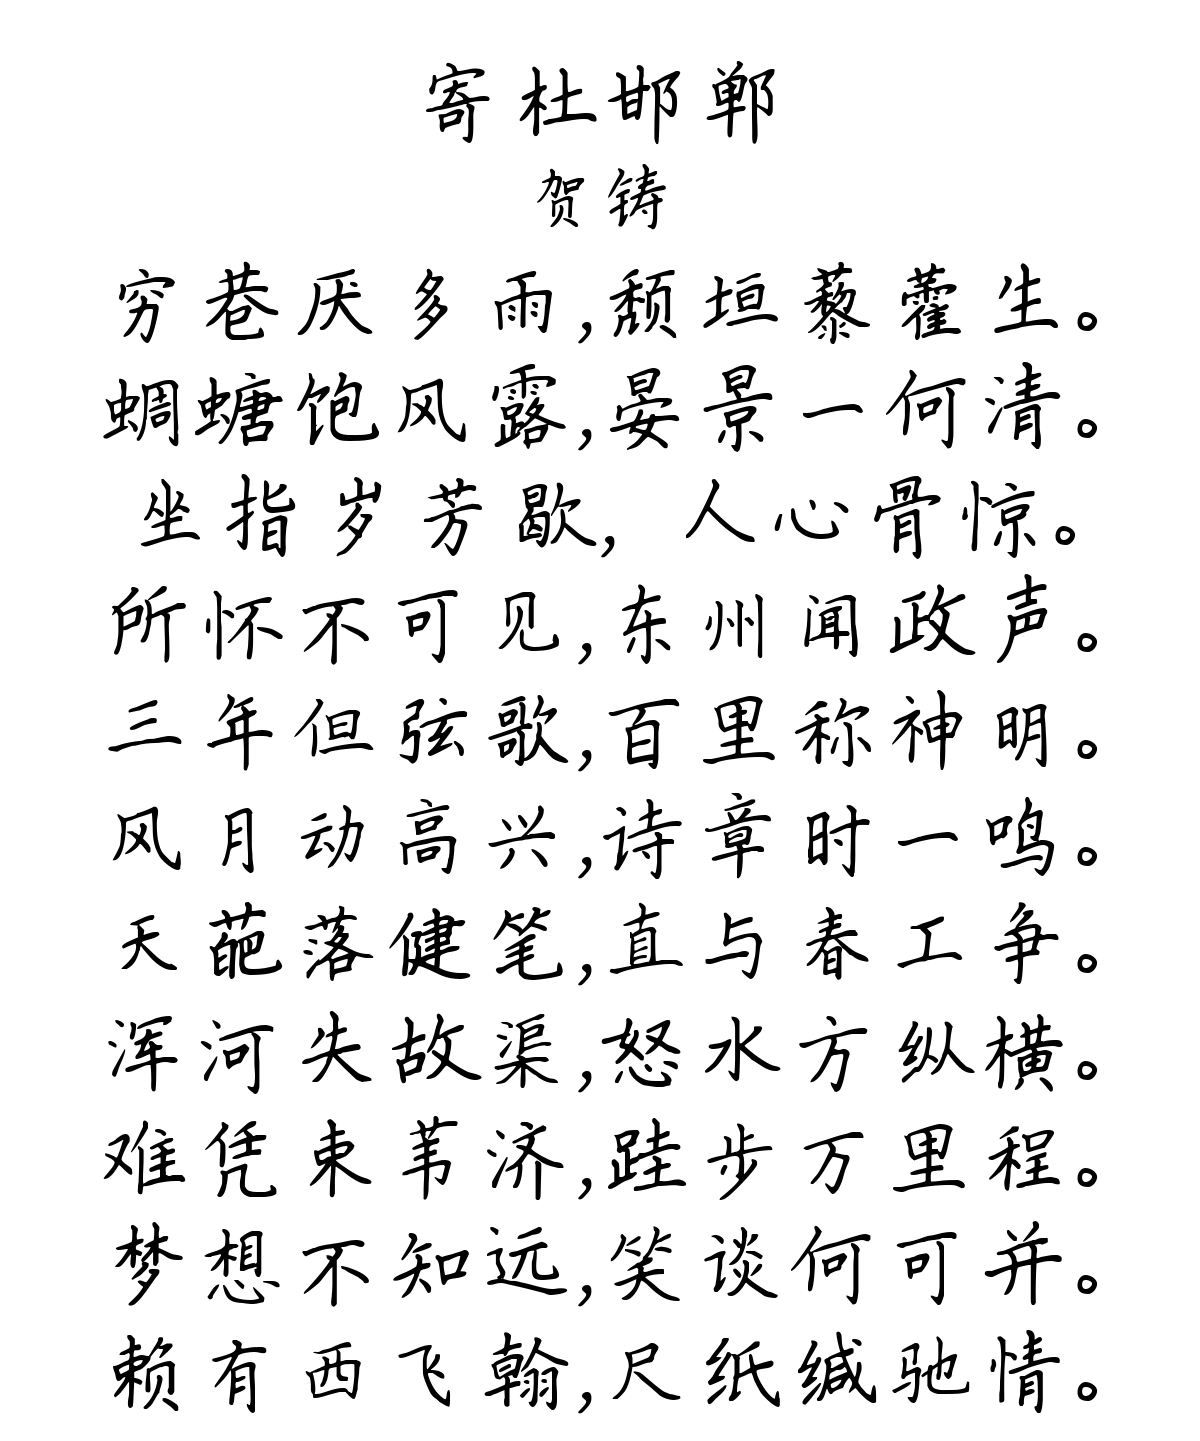 寄杜邯郸
贺铸
穷巷厌多雨,颓垣藜藿生。
蜩螗饱风露,晏景一何清。
坐指岁芳歇,人心骨惊。
所怀不可见,东州闻政声。
三年但弦歌,百里称神明。
风月动高兴,诗章时一鸣。
天葩落健笔,直与春工争。
浑河失故渠,怒水方纵横。
难凭束苇济,跬步万里程。
梦想不知远,笑谈何可并。
赖有西飞翰,尺纸缄驰情。